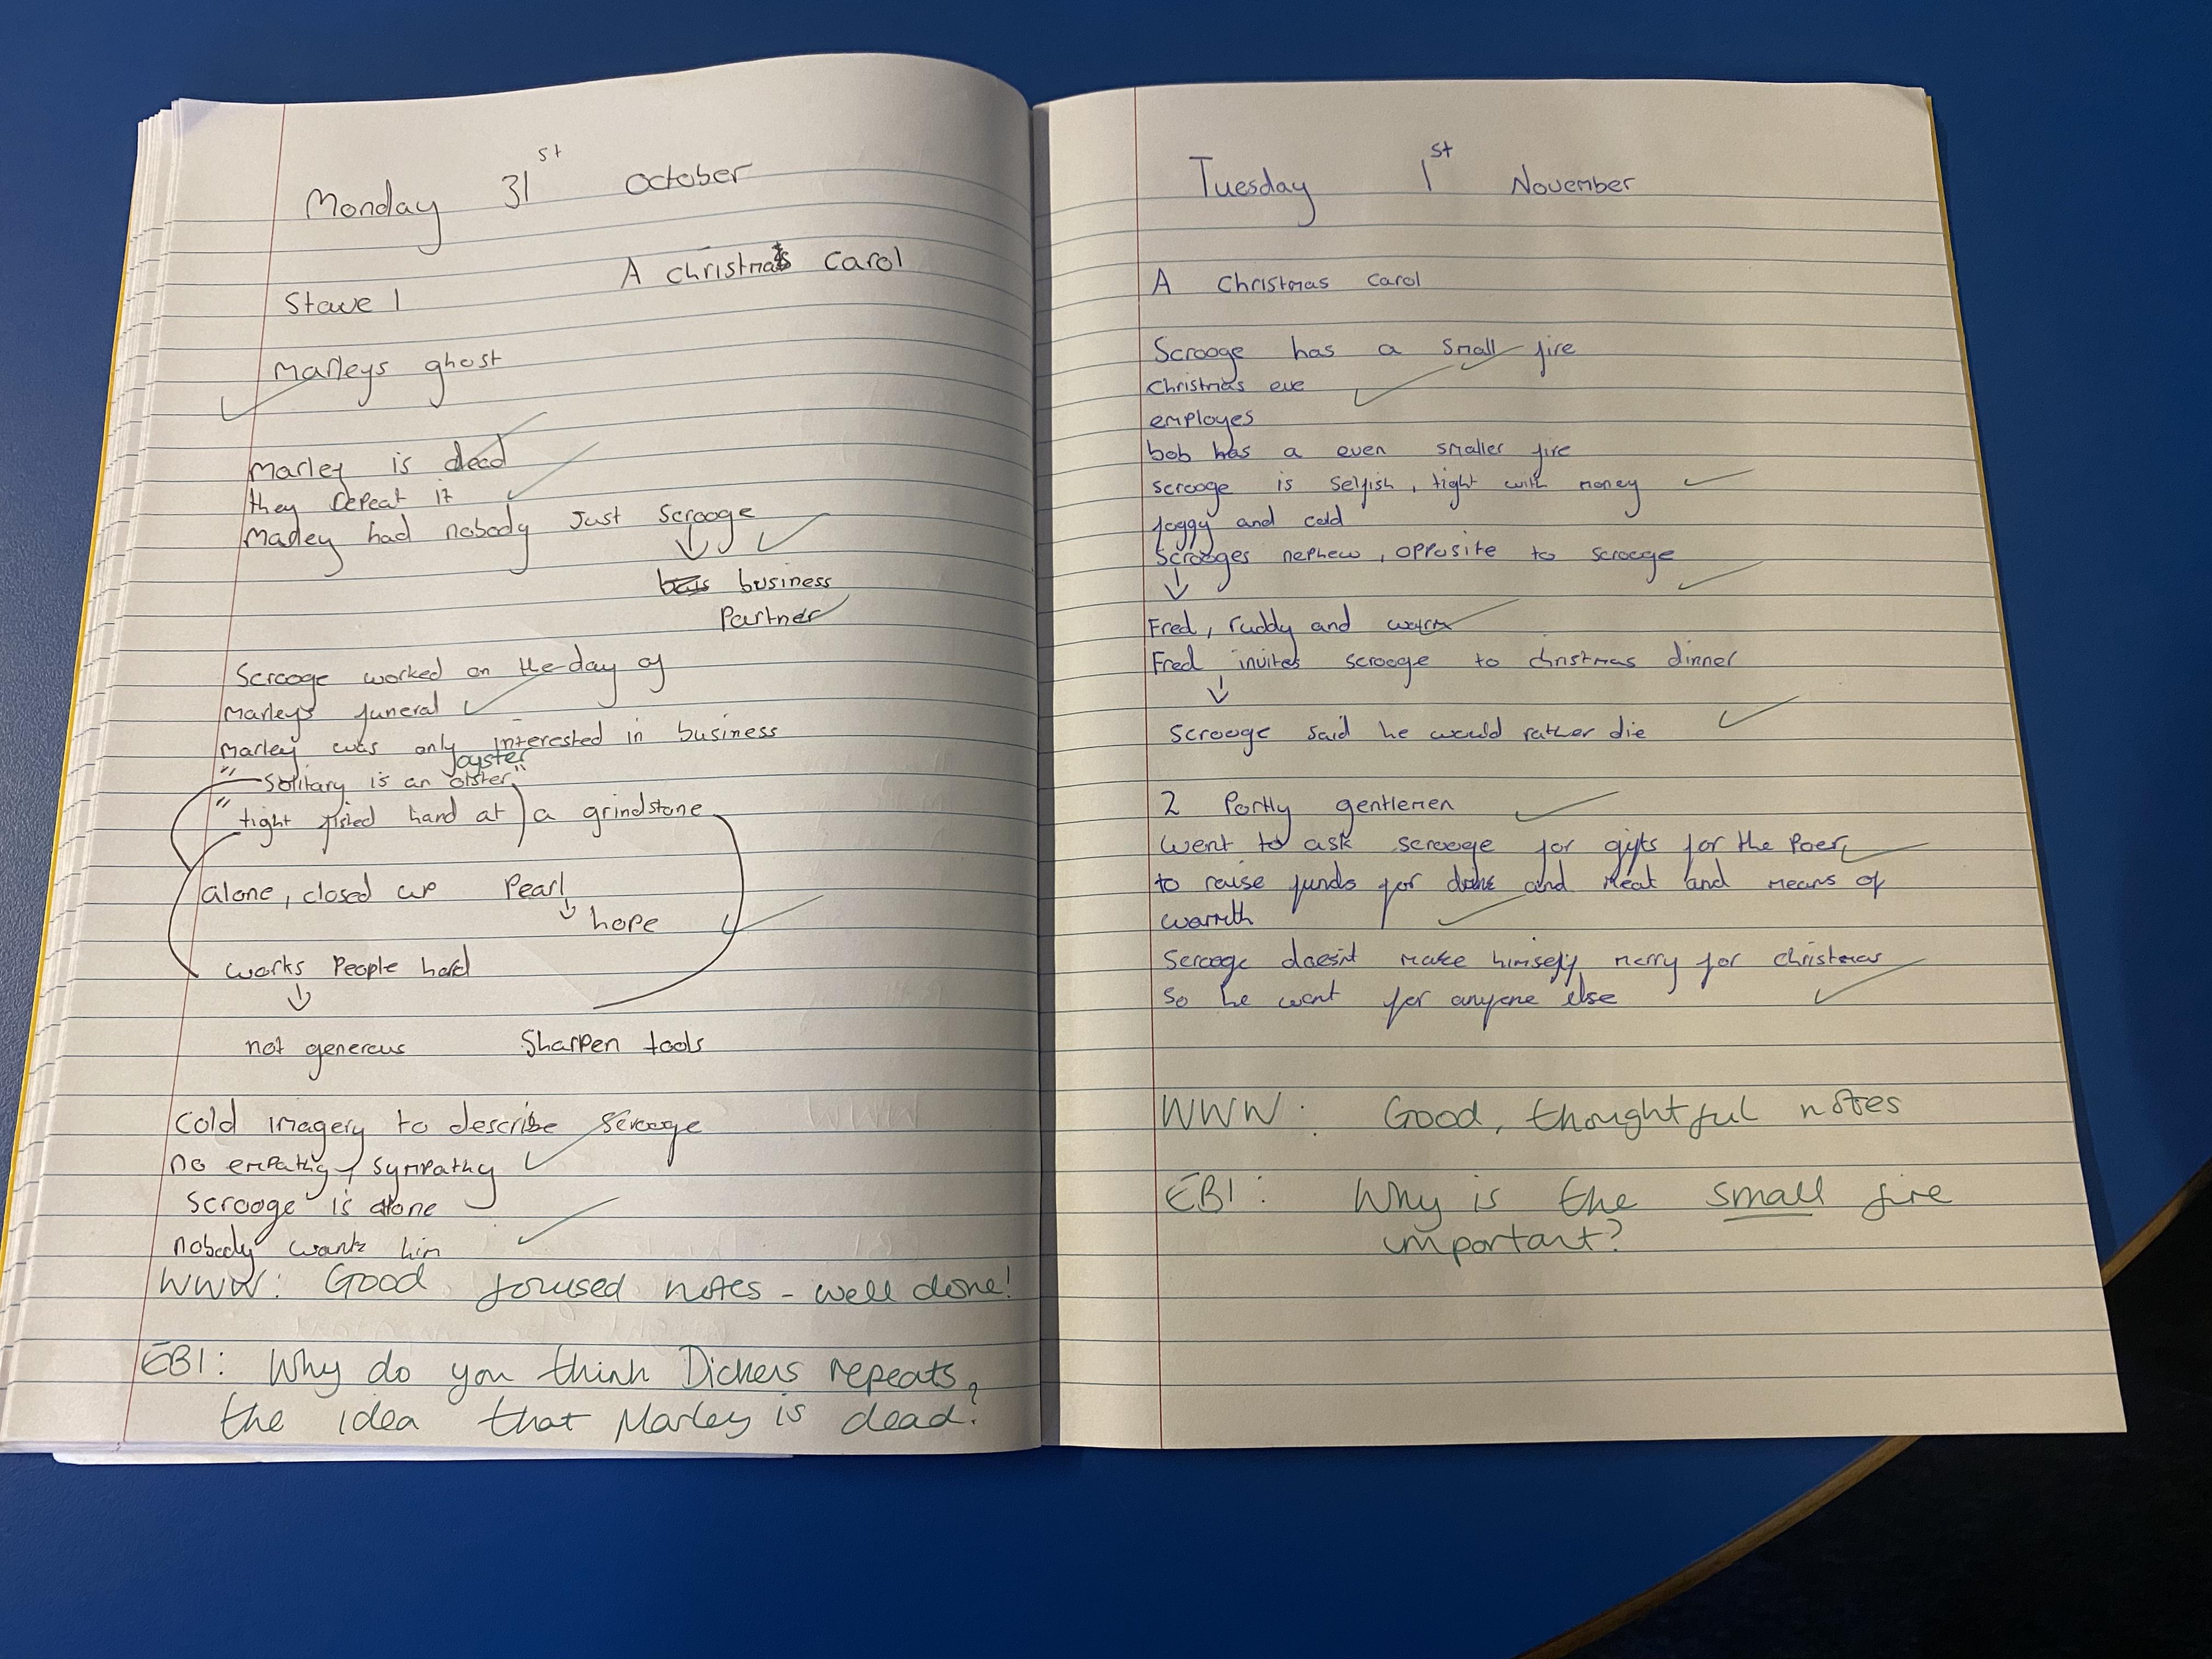 Monday 31st October
A christmas carol
Stave 1
Marleys ghost
Marley is dead
they repeat it
Marley had nobody Just Scrooge
business
Partner
Scrooge worked on the day of
Marleys funeral
Marley was only interested in business
oyster
"Solitary is an oister"
"tight fisted hand at a grindstone
alone, closed up Pearl
hope
works People hard
not generous Sharpen tools
Cold imagery to describe Scrooge
no empathy, sympathy
Scrooge is alone
nobody wants him
WWW: Good, focused notes - well done!
EBI: Why do you think Dickens repeats
the idea that Marley is dead?
Tuesday 1st November
A Christmas Carol
Scrooge has a small fire
Christmas eve
employes
bob has a even smaller fire
scrooge is selfish, tight with money
foggy and cold
Scrooges nephew, opposite to scrooge
Fred, ruddy and warm
Fred invites scrooge to christmas dinner
Scrooge said he would rather die
2 Portly gentlemen
went to ask scrooge for gifts for the Poer,
to raise funds for and meat and means of
warmth
Scrooge doesn't make himself merry for christmas
so he wont for anyone else
WWW: Good, thoughtful notes
EBI: Why is the small fire
important?